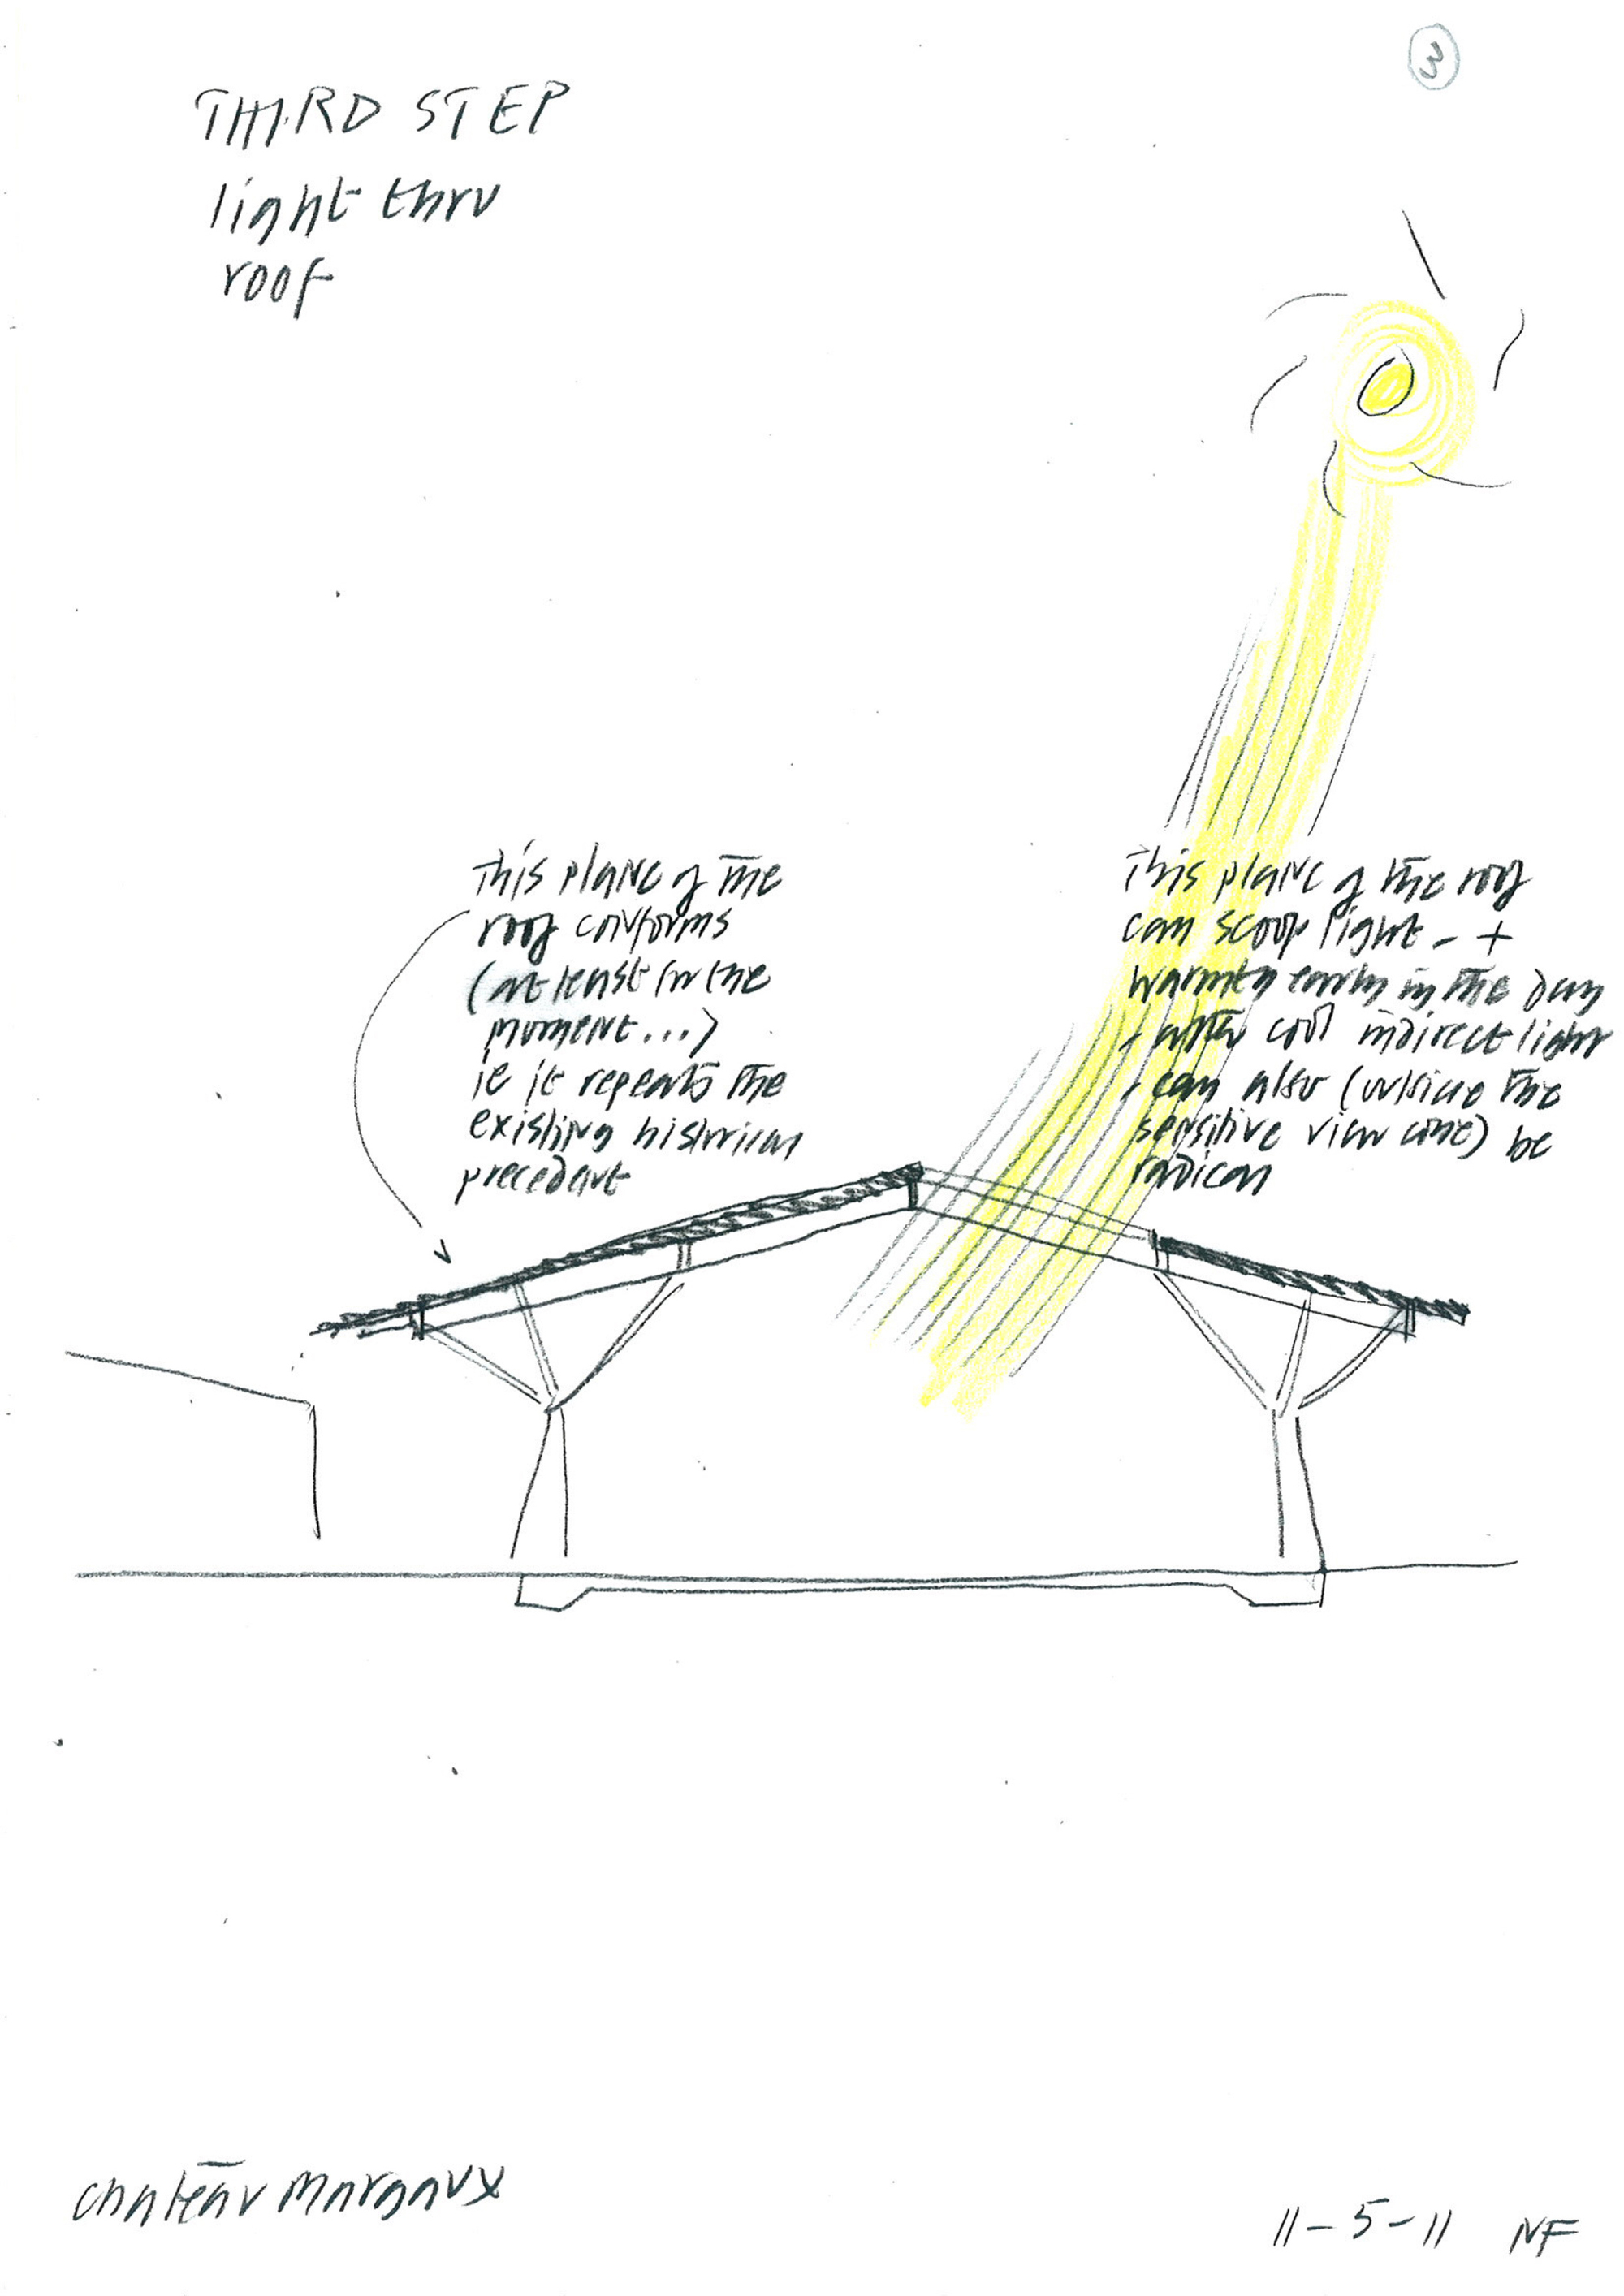 3
THIRD STEP
light thru
roof
This plane of the
roof conforms
(at least for the
moment...)
ie it repeats the
existing historical
precedent
This plane of the roof
can scoop light - +
warmth early in the day
- after cool indirect light
- can also (outside the
sensitive view cone) be
radical
Chateau Margaux
11-5-11 NF